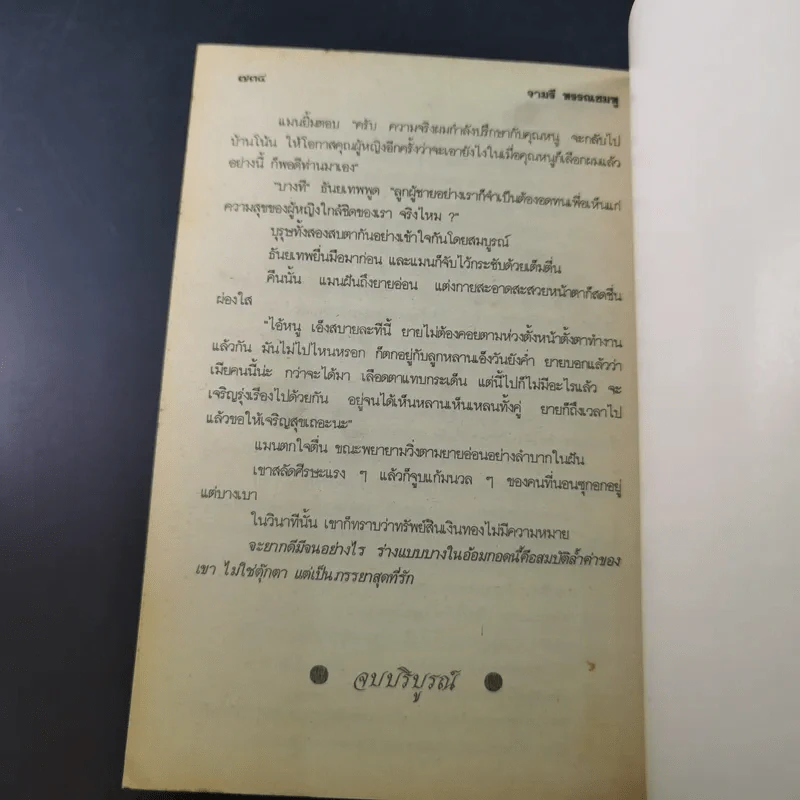 ๗๓๔
วามรี พรรณชมพู
แมนยิ้มตอบ "ครับ ความจริงผมกำลังปรึกษากับคุณหนู จะกลับไป
บ้านโน้น ให้โอกาสคุณผู้หญิงอีกครั้งว่าจะเอายังไงในเมื่อคุณหนูก็เลือกผมแล้ว
อย่างนี้ ก็พอดีท่านมาเอง"
"บางที" ธันยเทพพูด "ลูกผู้ชายอย่างเราก็จำเป็นต้องอดทนเพื่อเห็นแก่
ความสุขของผู้หญิงใกล้ชิดของเรา จริงไหม ?"
บุรุษทั้งสองสบตากันอย่างเข้าใจกันโดยสมบูรณ์
ธันยเทพยื่นมือมาก่อน และแมนก็จับไว้กระชับด้วยเต็มตื่น
คืนนั้น แมนฝันถึงยายอ่อน แต่งกายสะอาดสะสวยหน้าตาก็สดชื่น
ผ่องใส
"ไอ้หนู เอ็งสบายละทีนี้ ยายไม่ต้องคอยตามห่วงตั้งหน้าตั้งตาทำงาน
แล้วกัน มันไม่ไปไหนหรอก ก็ตกอยู่กับลูกหลานเอ็งวันยังค่ำ ยายบอกแล้วว่า
เมียคนนี้น่ะ กว่าจะได้มา เลือดตาแทบกระเด็น แต่นี้ไปก็ไม่มีอะไรแล้ว จะ
เจริญรุ่งเรืองไปด้วยกัน อยู่จนได้เห็นหลานเห็นเหลนทั้งคู่ ยายก็ถึงเวลาไป
แล้วขอให้เจริญสุขเถอะนะ"
แมนตกใจตื่น ขณะพยายามวิ่งตามยายอ่อนอย่างลำบากในฝัน
เขาสลัดศีรษะแรง ๆ แล้วก็จูบแก้มนวล ๆ ของคนที่นอนซุกอกอยู่
แต่บางเบา
ในวินาทีนั้น เขาก็ทราบว่าทรัพย์สินเงินทองไม่มีความหมาย
จะยากดีมีจนอย่างไร ร่างแบบบางในอ้อมกอดนี้คือสมบัติล้ำค่าของ
เขา ไม่ใช่ตุ๊กตา แต่เป็นภรรยาสุดที่รัก
จบบริบูรณ์